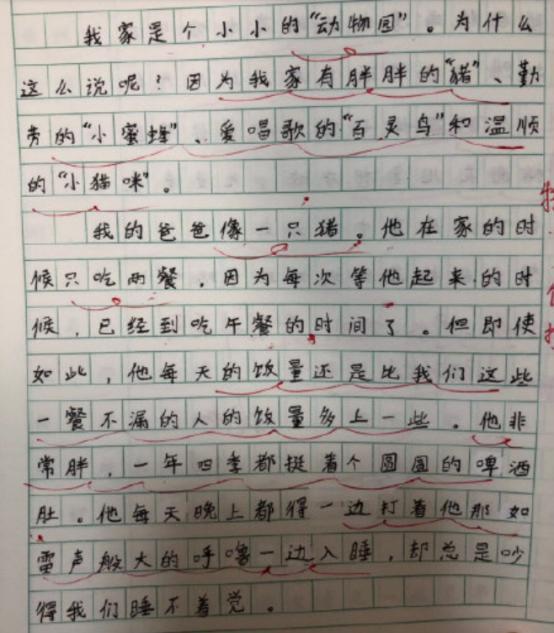 我家是个小小的“动物园”。为什么
这么说呢？因为我家有胖胖的“猪”、勤
劳的“小蜜蜂”、爱唱歌的“百灵鸟”和温顺
的“小猫咪”。
我的爸爸像一只猪。他在家的时
候只吃两餐，因为每次等他起来的时
候，已经到吃午餐的时间了。但即使
如此，他每天的饭量还是比我们这些
一餐不漏的人的饭量多上一些。他非
常胖，一年四季都挺着个圆圆的啤酒
肚。他每天晚上都得一边打着他那如
雷声般大的呼噜一边入睡，却总是吵
得我们睡不着觉。